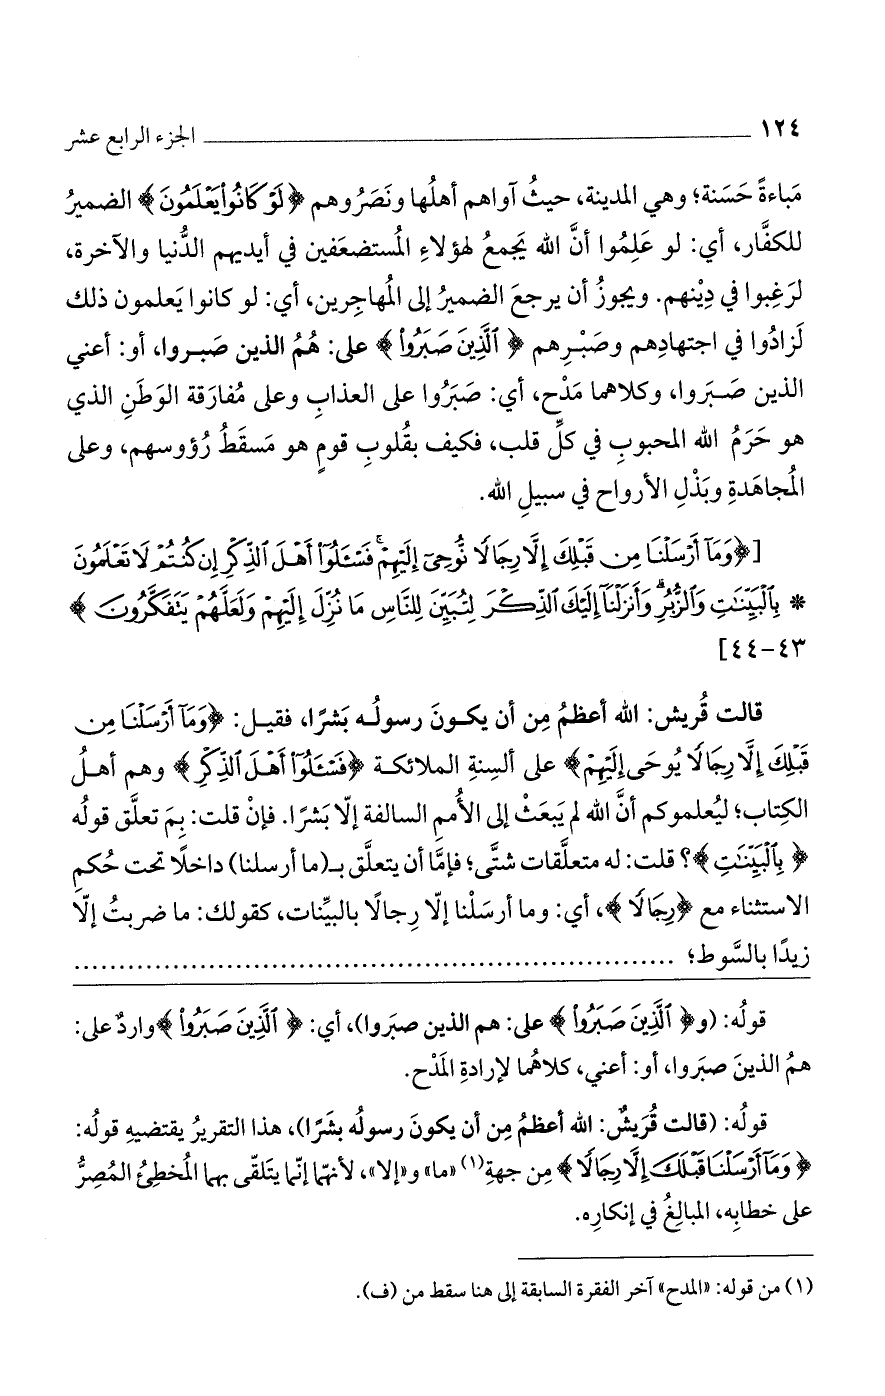 ١٢٤ الجزء الرابع عشر
مَباءةً حَسَنة؛ وهي المدينة، حيثُ آواهم أهلُها ونَصَرُوهم ﴿لَوْ كَانُوا۟ يَعْلَمُونَ﴾ الضميرُ
للكفَّار، أي: لو عَلِمُوا أنَّ الله يَجمعُ لهؤلاءِ المُستضعَفين في أيديهم الدُّنيا والآخرة،
لرَغِبوا في دِيْنهم. ويجوزُ أن يرجعَ الضميرُ إلى المُهاجرِين، أي: لو كانوا يَعلمون ذلك
لَزادُوا في اجتهادِهم وصَبْرِهم ﴿ٱلَّذِينَ صَبَرُوا۟﴾ على: هُمُ الذين صَبروا، أو: أعني
الذين صَبَروا، وكلاهما مَدْح، أي: صَبَرُوا على العذابِ وعلى مُفارَقة الوَطَنِ الذي
هو حَرَمُ الله المحبوبِ في كلِّ قلب، فكيف بقُلوبِ قومٍ هو مَسقَطُ رُؤوسهم، وعلى
المُجاهَدةِ وبَذْلِ الأرواح في سبيلِ الله.
[﴿وَمَآ أَرْسَلْنَا مِن قَبْلِكَ إِلَّا رِجَالًا نُّوحِىٓ إِلَيْهِمْ ۚ فَسْـَٔلُوٓا۟ أَهْلَ ٱلذِّكْرِ إِن كُنتُمْ لَا تَعْلَمُونَ
* بِٱلْبَيِّنَٰتِ وَٱلزُّبُرِ ۗ وَأَنزَلْنَآ إِلَيْكَ ٱلذِّكْرَ لِتُبَيِّنَ لِلنَّاسِ مَا نُزِّلَ إِلَيْهِمْ وَلَعَلَّهُمْ يَتَفَكَّرُونَ﴾
٤٣-٤٤]
قالت قُريش: الله أعظمُ مِن أن يكونَ رسولُه بَشرًا، فقيل: ﴿وَمَآ أَرْسَلْنَا مِن
قَبْلِكَ إِلَّا رِجَالًا يُوحَى إِلَيْهِمْ﴾ على ألسِنةِ الملائكة ﴿فَسْـَٔلُوٓا۟ أَهْلَ ٱلذِّكْرِ﴾ وهم أهلُ
الكِتاب؛ ليُعلموكم أنَّ الله لم يَبعَثْ إلى الأُممِ السالفة إلّا بَشرًا. فإنْ قلت: بِمَ تعلَّق قولُه
﴿بِٱلْبَيِّنَٰتِ﴾؟ قلت: له متعلَّقات شتَّى؛ فإمَّا أن يتعلَّق بـ(ما أرسلنا) داخلًا تحت حُكمِ
الاستثناء مع ﴿رِجَالًا﴾، أي: وما أرسَلْنا إلّا رِجالًا بالبيِّنات، كقولك: ما ضربتُ إلّا
زيدًا بالسَّوط؛ ..................................................................
قولُه: (و﴿ٱلَّذِينَ صَبَرُوا۟﴾ على: هم الذين صبَروا)، أي: ﴿ٱلَّذِينَ صَبَرُوا۟﴾ واردٌ على:
همُ الذينَ صبَروا، أو: أعني، كلاهُما لإرادةِ المَدْح.
قولُه: (قالت قُرَيشٌ: الله أعظمُ مِن أن يكونَ رسولُه بشَرًا)، هذا التقريرُ يقتضيهِ قولُه:
﴿وَمَآ أَرْسَلْنَا قَبْلَكَ إِلَّا رِجَالًا﴾ مِن جهةِ(١) «ما» و«إلا»، لأنهما إنّما يَتَلقّى بهما المُخطِئُ المُصِرُّ
على خطابِه، المبالِغُ في إنكارِه.
(١) من قوله: «المدح» آخر الفقرة السابقة إلى هنا سقط من (ف).